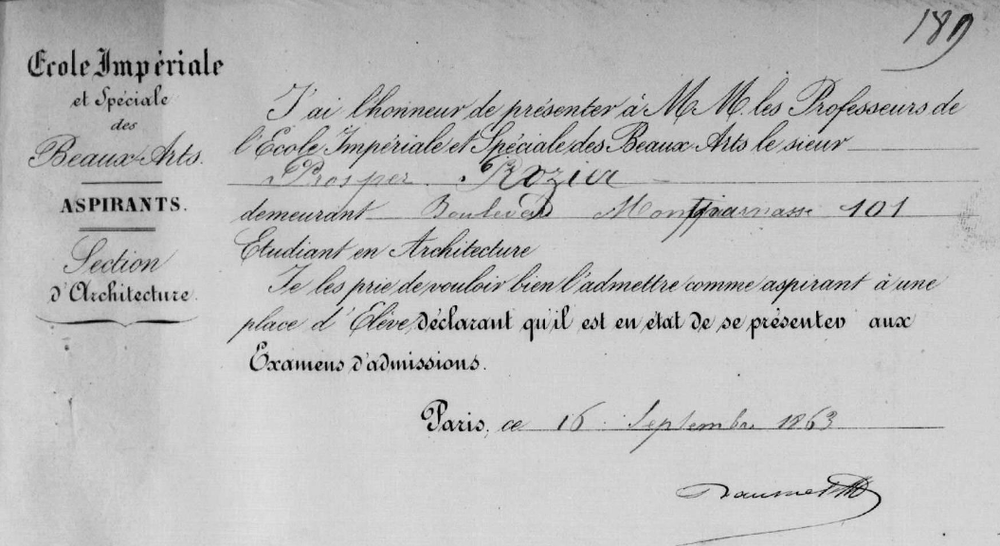 189
Ecole Impériale
et Spéciale
des
Beaux-Arts.
ASPIRANTS.
Section
d'Architecture.
J'ai l'honneur de présenter à M.M. les Professeurs de
l'Ecole Impériale et Spéciale des Beaux Arts le sieur
Prosper Rozier
demeurant Boulevard Montparnasse 101
Etudiant en Architecture
Je les prie de vouloir bien l'admettre comme aspirant à une
place d'Elève, déclarant qu'il est en état de se présenter aux
Examens d'admissions.
Paris, ce 16 Septembre 1863
Daumet